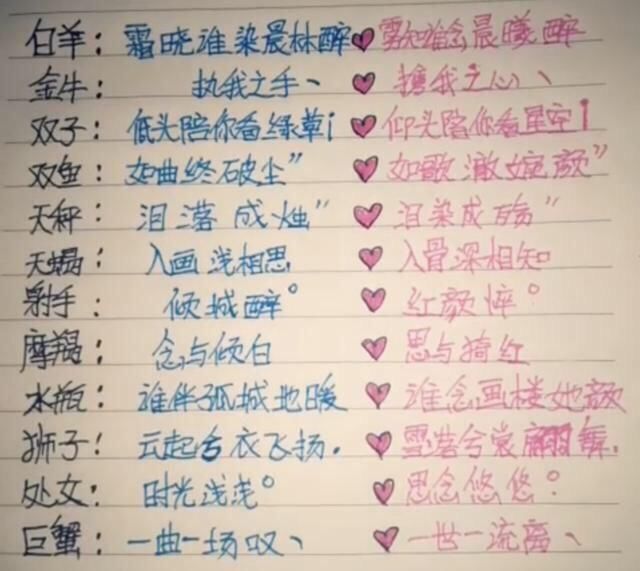 白羊：霜晓谁染晨林醉 雾知谁念晨曦醉
金牛：执我之手丶 携我之心丶
双子：低头陪你看绿草i 仰头陪你看星空i
双鱼：如曲终破尘" 如歌澈婉颜"
天秤：泪落成烛" 泪染成殇"
天蝎：入画浅相思 入骨深相知
射手：倾城醉° 红颜悴°
摩羯：念与倾白 思与猗红
水瓶：谁伴孤城地暖 谁念画楼她颜
狮子！云起兮衣飞扬. 雪落兮裳翩
处女：时光浅浅° 思念悠悠°
巨蟹：一曲一场叹丶 一世一流离丶